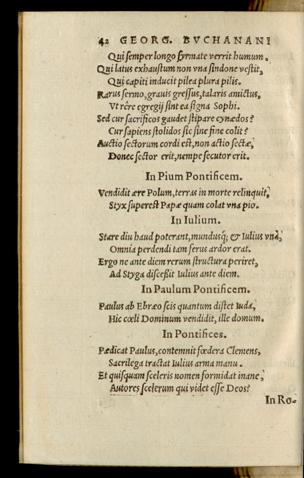 42 GEORG. BVCHANANI
Qui semper longo syrmate verrit humum.
Qui latus exhaustum non vna sindone vestit,
Qui capiti inducit pilea plura pilis.
Rarus sermo, grauis gressus, talaris amictus,
Vt rêre egregij sint ea signa Sophi.
Sed cur sacrificos gaudet stipare cynædos?
Cur sapiens stolidos sic sine fine colit?
Auctio sectorum cordi est, non actio sectæ,
Donec sector erit, nempe secutor erit.
In Pium Pontificem.
Vendidit ære Polum, terras in morte relinquit,
Styx superest Papæ quam colat vna pio.
In Iulium.
Stare diu haud poterant, mundusq; & Iulius vnà,
Omnia perdendi tam ferus ardor erat.
Ergo ne ante diem rerum structura periret,
Ad Styga discessit Iulius ante diem.
In Paulum Pontificem.
Paulus ab Ebræo scis quantum distet Iuda,
Hic cœli Dominum vendidit, ille domum.
In Pontifices.
Pædicat Paulus, contemnit fœdera Clemens,
Sacrilega tractat Iulius arma manu.
Et quisquam sceleris nomen formidat inane,
Autores scelerum qui videt esse Deos?
In Ro-